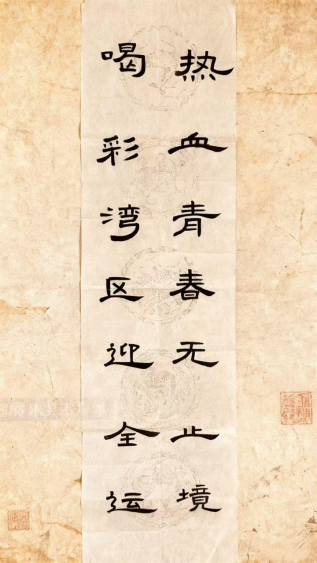 热血青春无止境
喝彩湾区迎全运